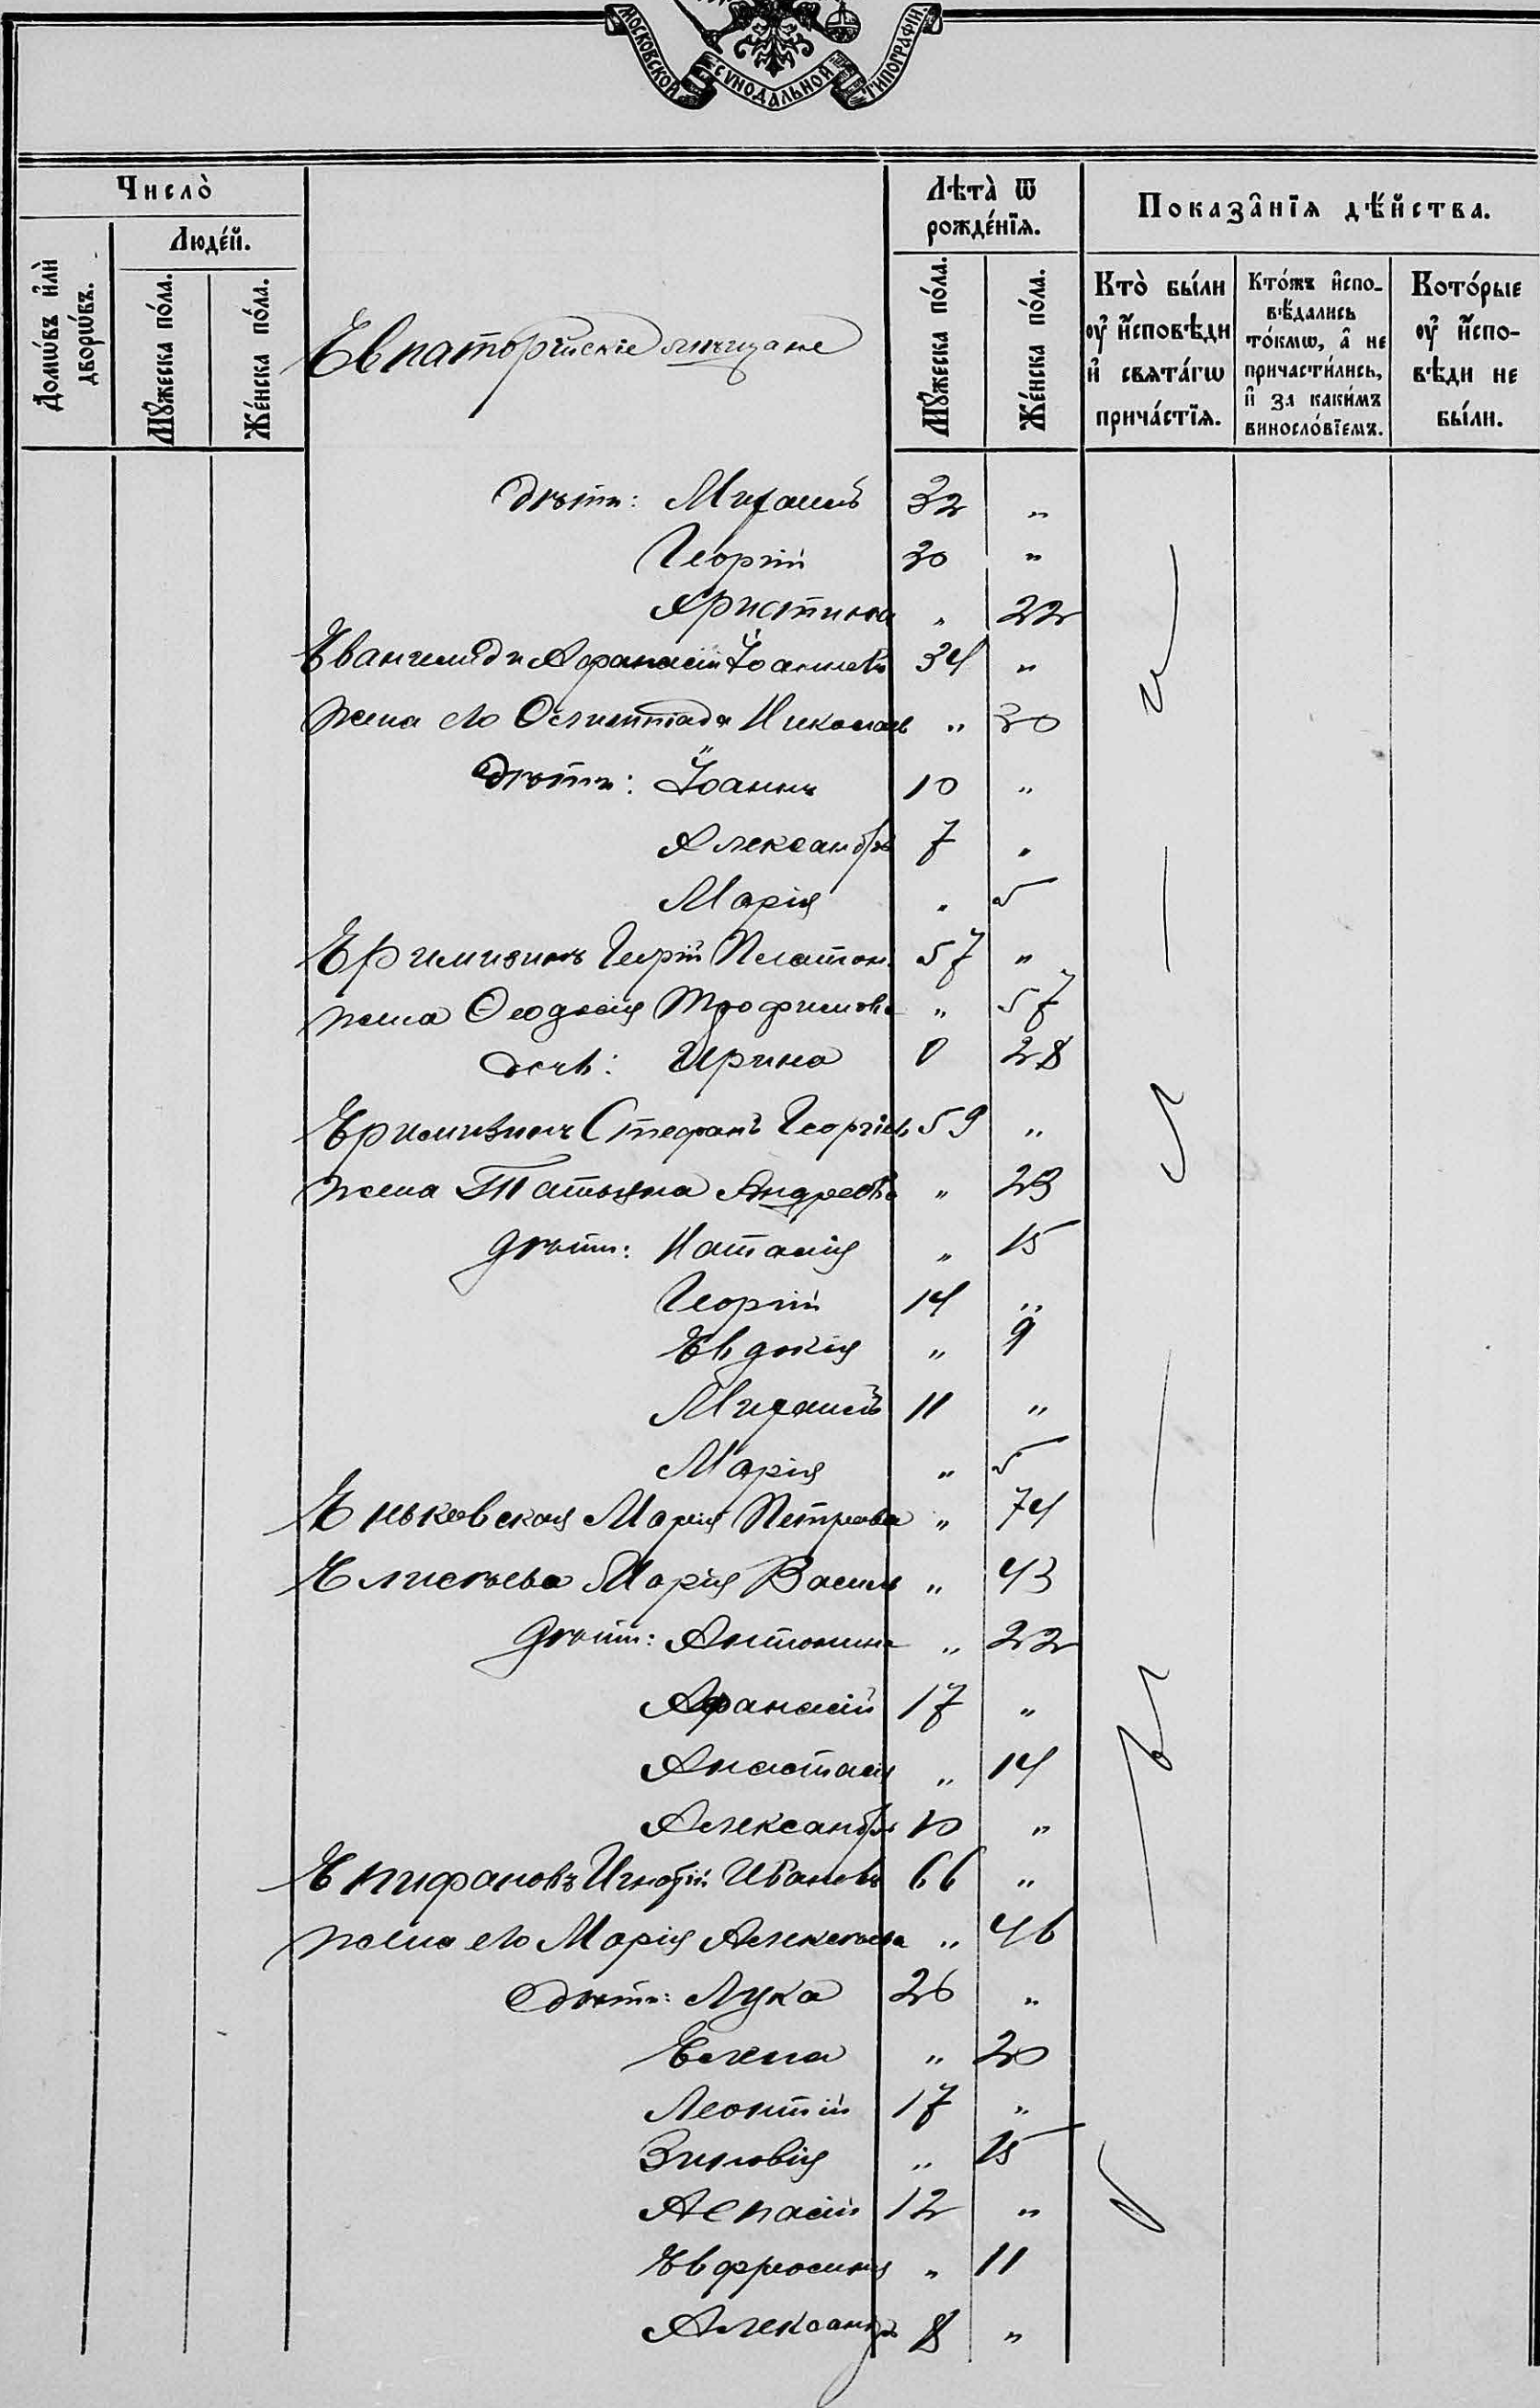 МОСКОВСКОЙ СѴНОДАЛЬНОЙ ТИПОГРАФІИ.
Число̀
Люде́й.
Домѡ́въ и҆лѝ дворѡ́въ.
Мꙋ́жеска по́ла.
Же́нска по́ла.
Евпаторійскіе мѣщане
Лѣта̀ ѿ рожде́нїѧ.
Мꙋ́жеска по́ла.
Же́нска по́ла.
Показа̑нїѧ дѣ́йства.
Кто̀ бы́ли оу҆ и҆́сповѣди и҆ свята́гѡ прича́стїѧ.
Кто́жъ и҆спо-вѣ́дались то́кмѡ, а҆ не причасти́лись, и҆ за каки́мъ винослоо́вїемъ.
Кото́рые оу҆ и҆́спо-вѣди не бы́ли.
дѣти: Михаилъ 32 "
Георгій 30 "
Христина " 22
Евангелиди Афанасій Іоаннов 34 "
жена его Олимпіада Николаев " 30
дѣти: Іоаннъ 10 "
Александръ 7 "
Марія " 5
Еримизинъ Георгій Платон. 57 "
жена Феодосія Трофимова " 57
дочь: Ирина 0 28
Еримизинъ Стефанъ Георгіев 59 "
жена Татьяна Андреева " 23
дѣти: Наталія " 15
Георгій 14 "
Евдокія " 9
Михаилъ 11 "
Марія " 5
Еньковская Марія Петрова " 74
Елисѣева Марія Васил " 43
дѣти: Антонина " 22
Афанасій 17 "
Анастасія " 14
Александръ 10 "
Епифановъ Игнатій Ивановъ 66 "
жена его Марія Алексѣева " 46
дѣти: Лука 26 "
Елена " 20
Леонтій 17 "
Зиновія " 15
Аспасій 12 "
Евфросинія " 11
Александръ 8 "